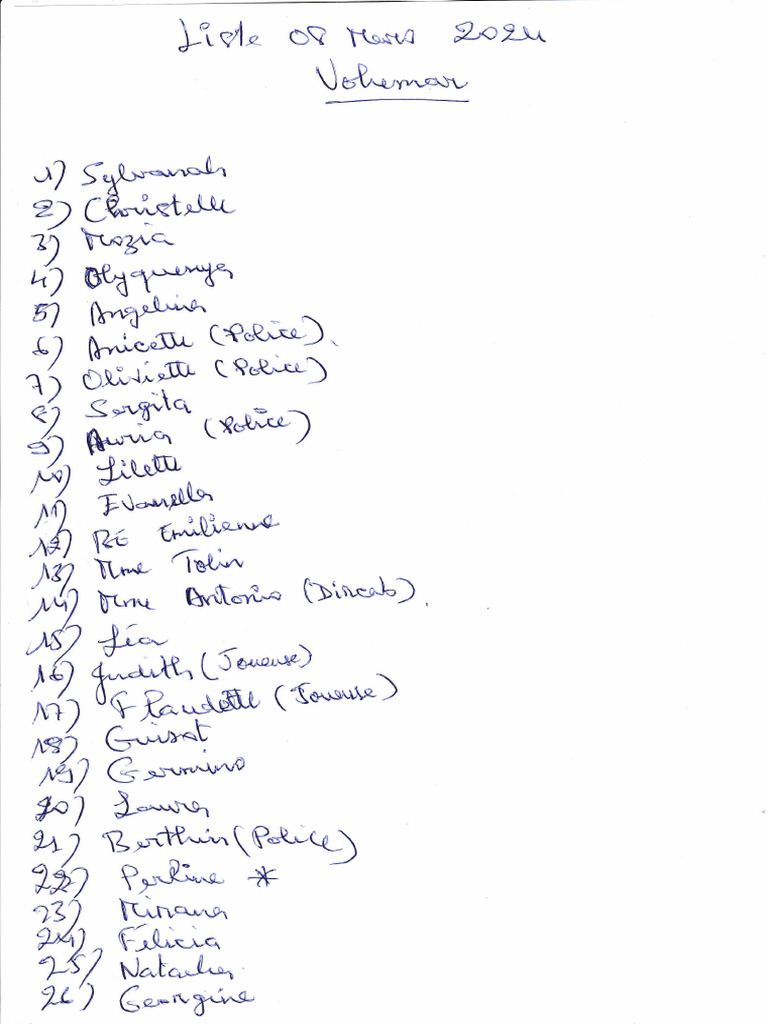 Liste 08 Mars 2024
Vohemar
1) Sylvanah
2) Christelle
3) Mozia
4) Olyquenya
5) Angelina
6) Anicette (Police)
7) Oliviette (Police)
8) Sergita
9) Auria (Police)
10) Lilette
11) Evanella
12) RE Emilienne
13) Mme Tolin
14) Mme Antonio (Dircab)
15) Léa
16) Judith (Joueuse)
17) Flaudette (Joueuse)
18)
19) Germino
20) Laura
21) Berthin (Police)
22) Perline *
23) Mirana
24) Félicia
25) Natacha
26) Georgine